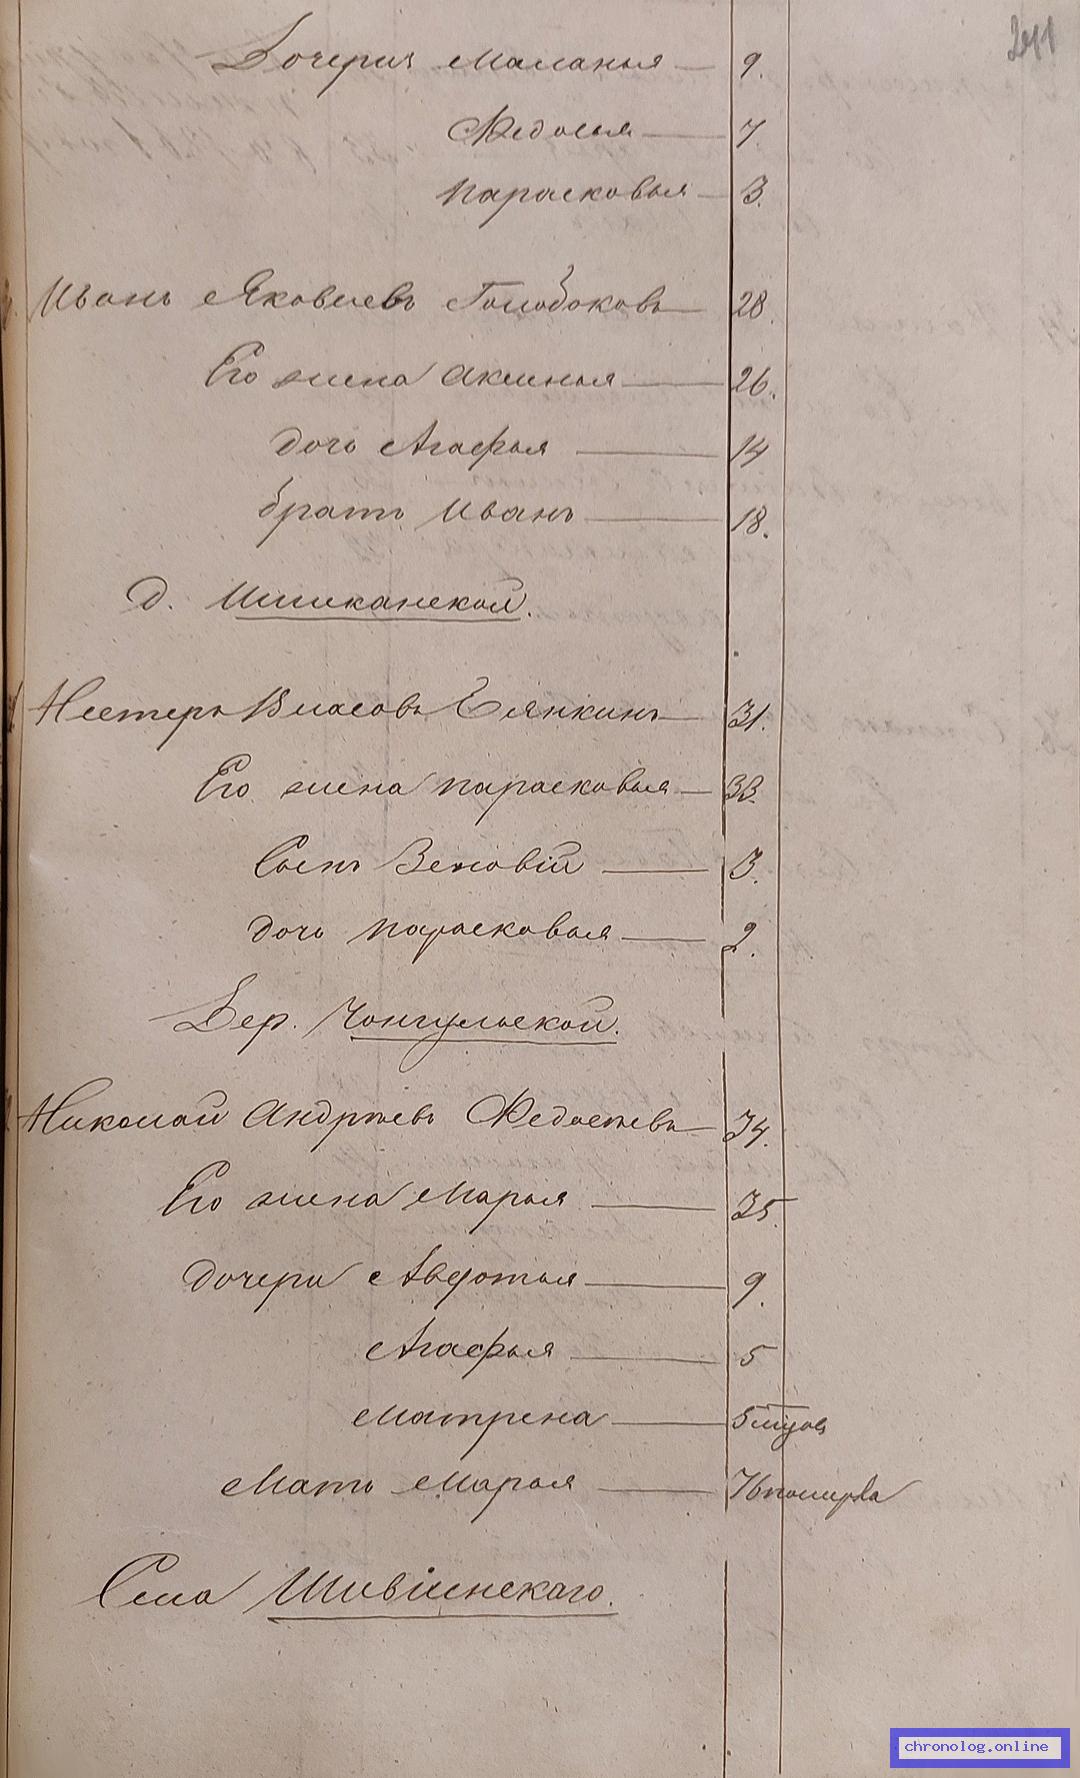 241
Дочерия Маланья — 9.
Федосья — 7.
Парасковья — 3.
Иванъ Яковлевъ Голобоковъ — 28.
Его жена Аксинья — 26.
дочь Агафья — 14
братъ Иванъ — 18.
д. Ишиканской.
Нестеръ Власовъ Елянкинъ — 31.
Его жена Парасковья — 33.
Сынъ Зеновій — 3.
дочь Парасковья — 2.
Дер. Чонгульской.
Николай Андрѣевъ Федосѣевъ — 34.
Его жена Марья — 35.
дочери Авдотья — 9.
Агафья — 5
Матрена — 5 мцов
Мать Марья — 76 померла
Села Шивіинскаго.
chronolog.online